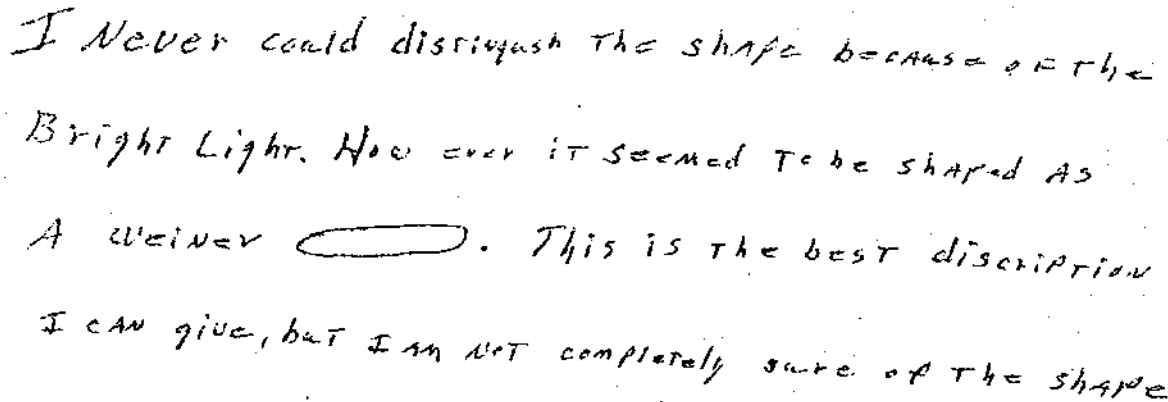 I Never could distinqush The shape because of the
Bright Light. How ever iT seemed To be shaped As
A weiner . This is The best discription
I cAN give, buT I Am NoT completely sure of The shape